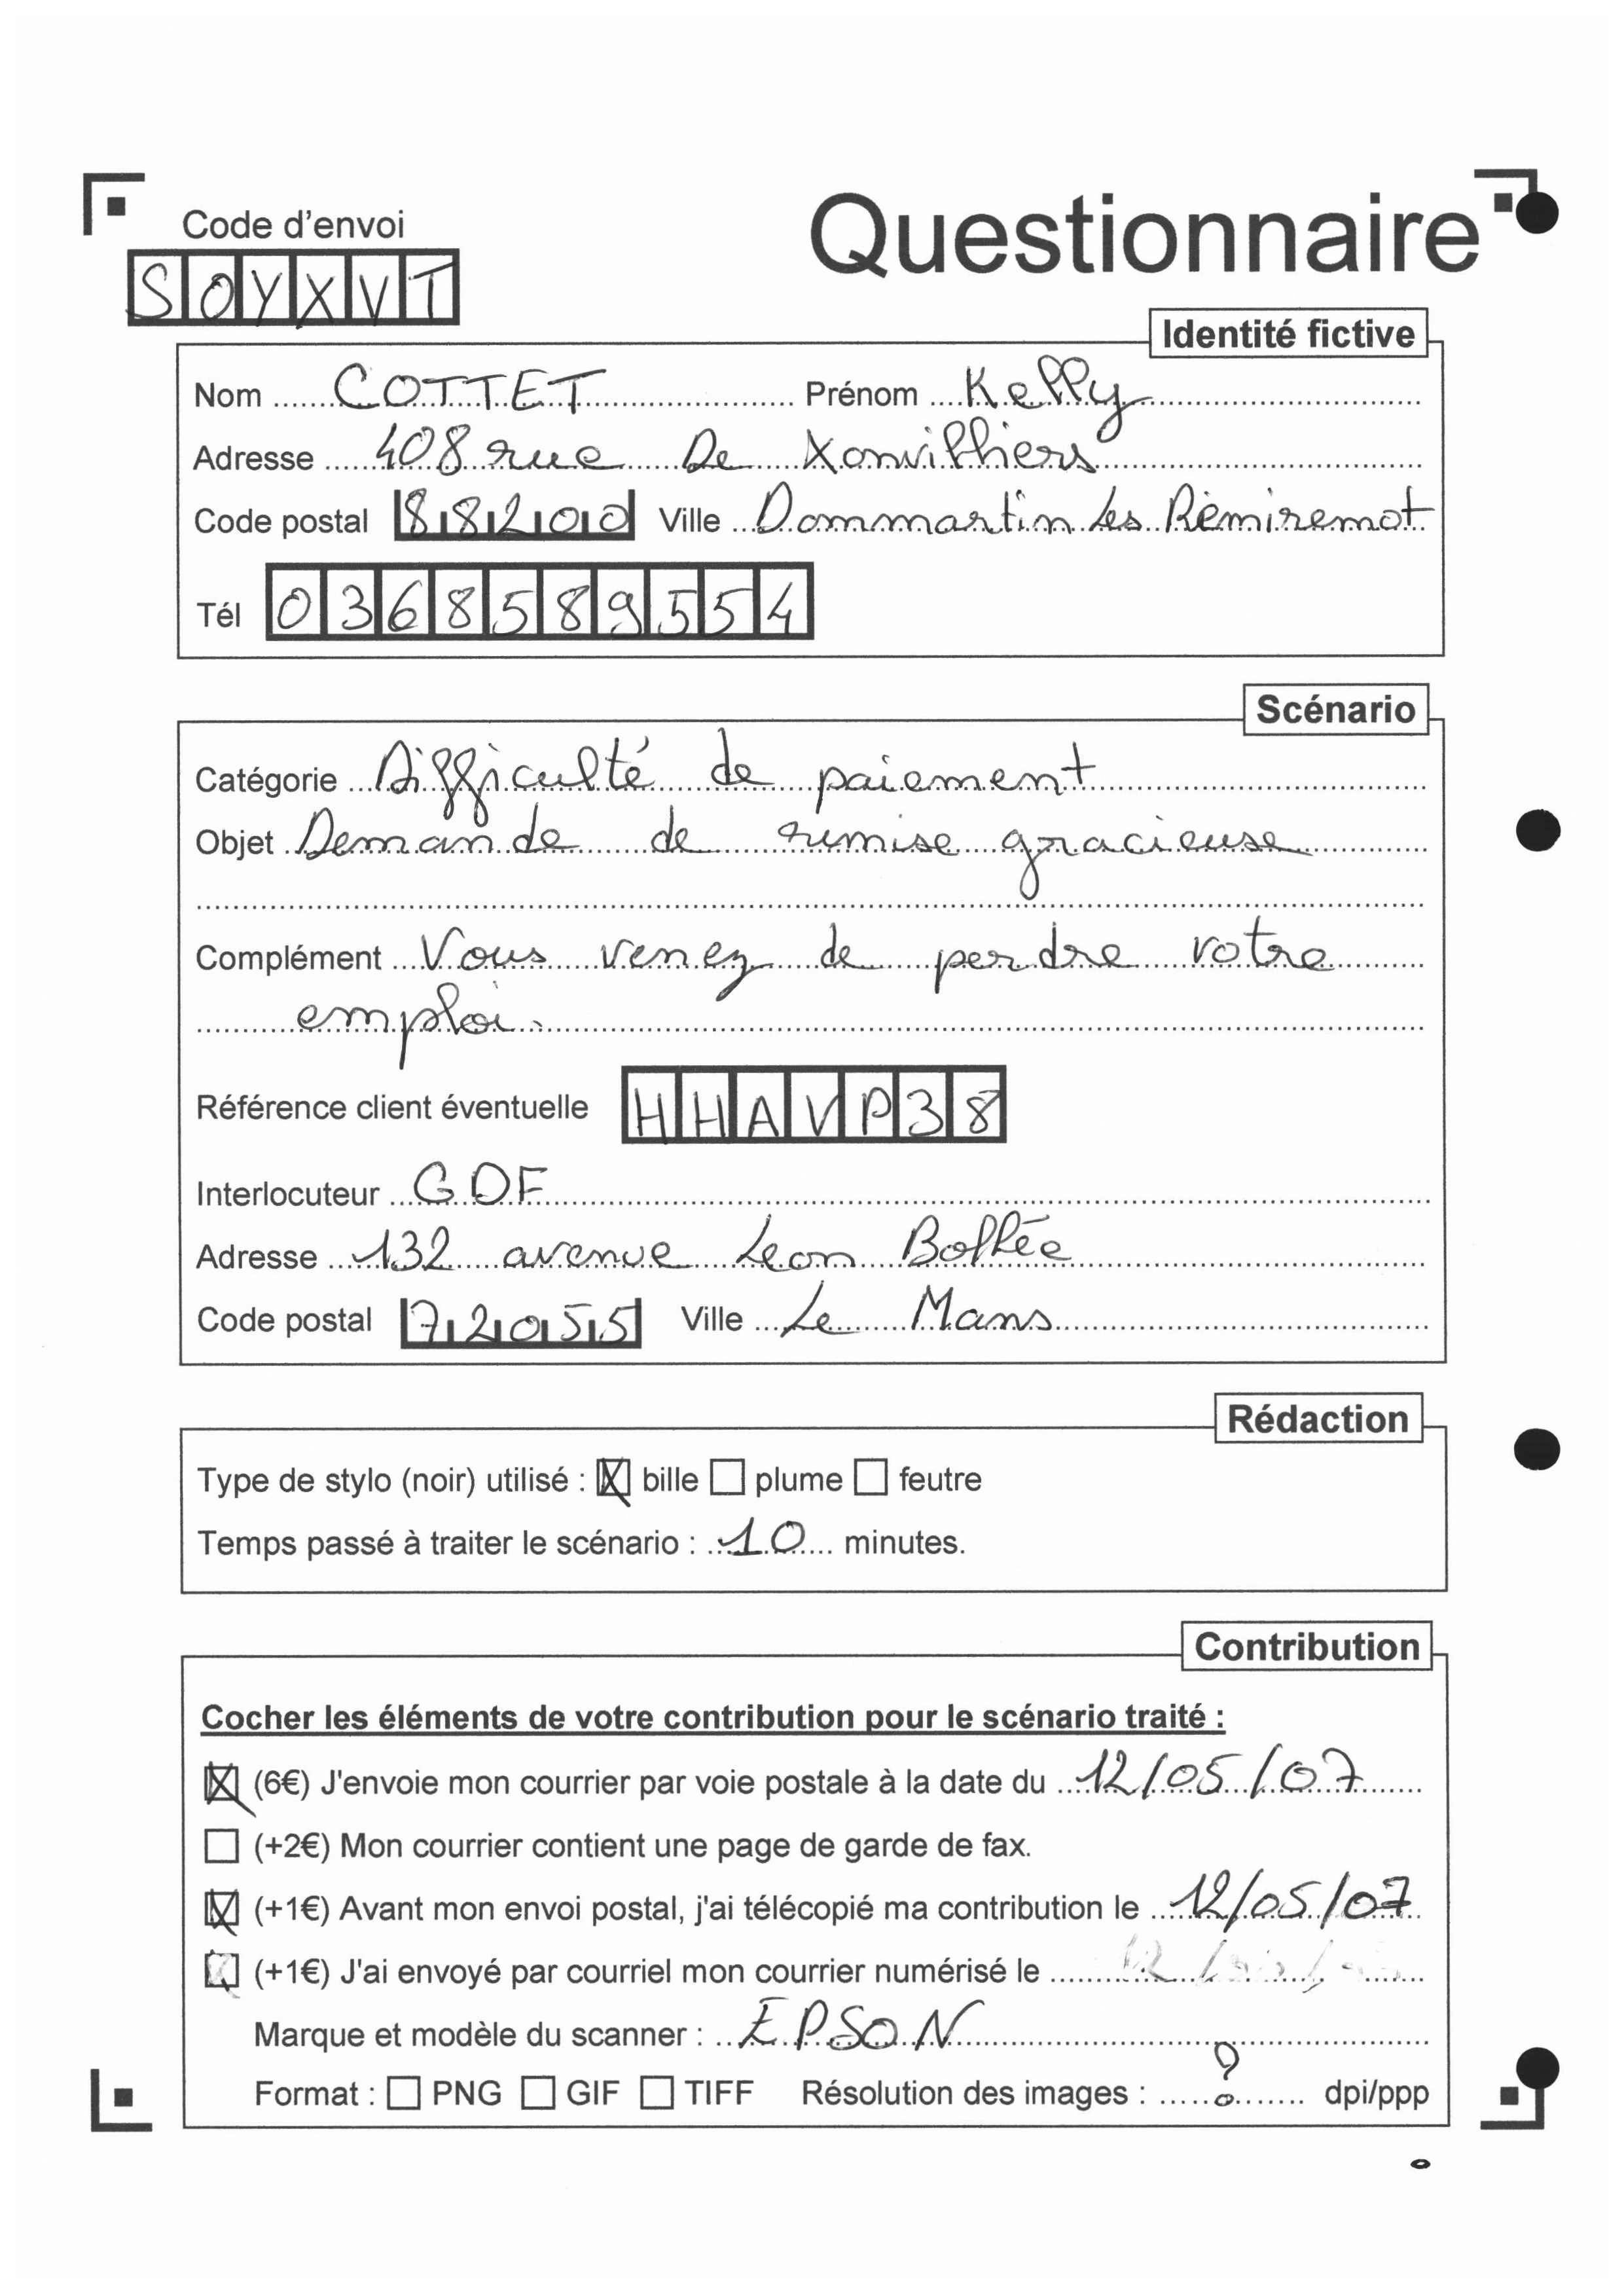 Code d'envoi
Questionnaire
SOYXVT
Identité fictive
Nom COTTET Prénom Kelly
Adresse 408 rue De Xonvilliers
Code postal 88200 Ville Dommartin Les Remiremot
Tél 0368589554
Scénario
Catégorie Difficulté de paiement
Objet Demande de remise gracieuse
Complément Vous venez de perdre votre
emploi.
Référence client éventuelle HHAVP38
Interlocuteur GDF
Adresse 132 avenue Leon Bollée
Code postal 72055 Ville Le Mans
Rédaction
Type de stylo (noir) utilisé : bille plume feutre
Temps passé à traiter le scénario : 10 minutes.
Contribution
Cocher les éléments de votre contribution pour le scénario traité :
(6€) J'envoie mon courrier par voie postale à la date du 12/05/07
(+2€) Mon courrier contient une page de garde de fax.
(+1€) Avant mon envoi postal, j'ai télécopié ma contribution le 12/05/07
(+1€) J'ai envoyé par courriel mon courrier numérisé le
Marque et modèle du scanner : EPSON
Format : PNG GIF TIFF Résolution des images : ? dpi/ppp